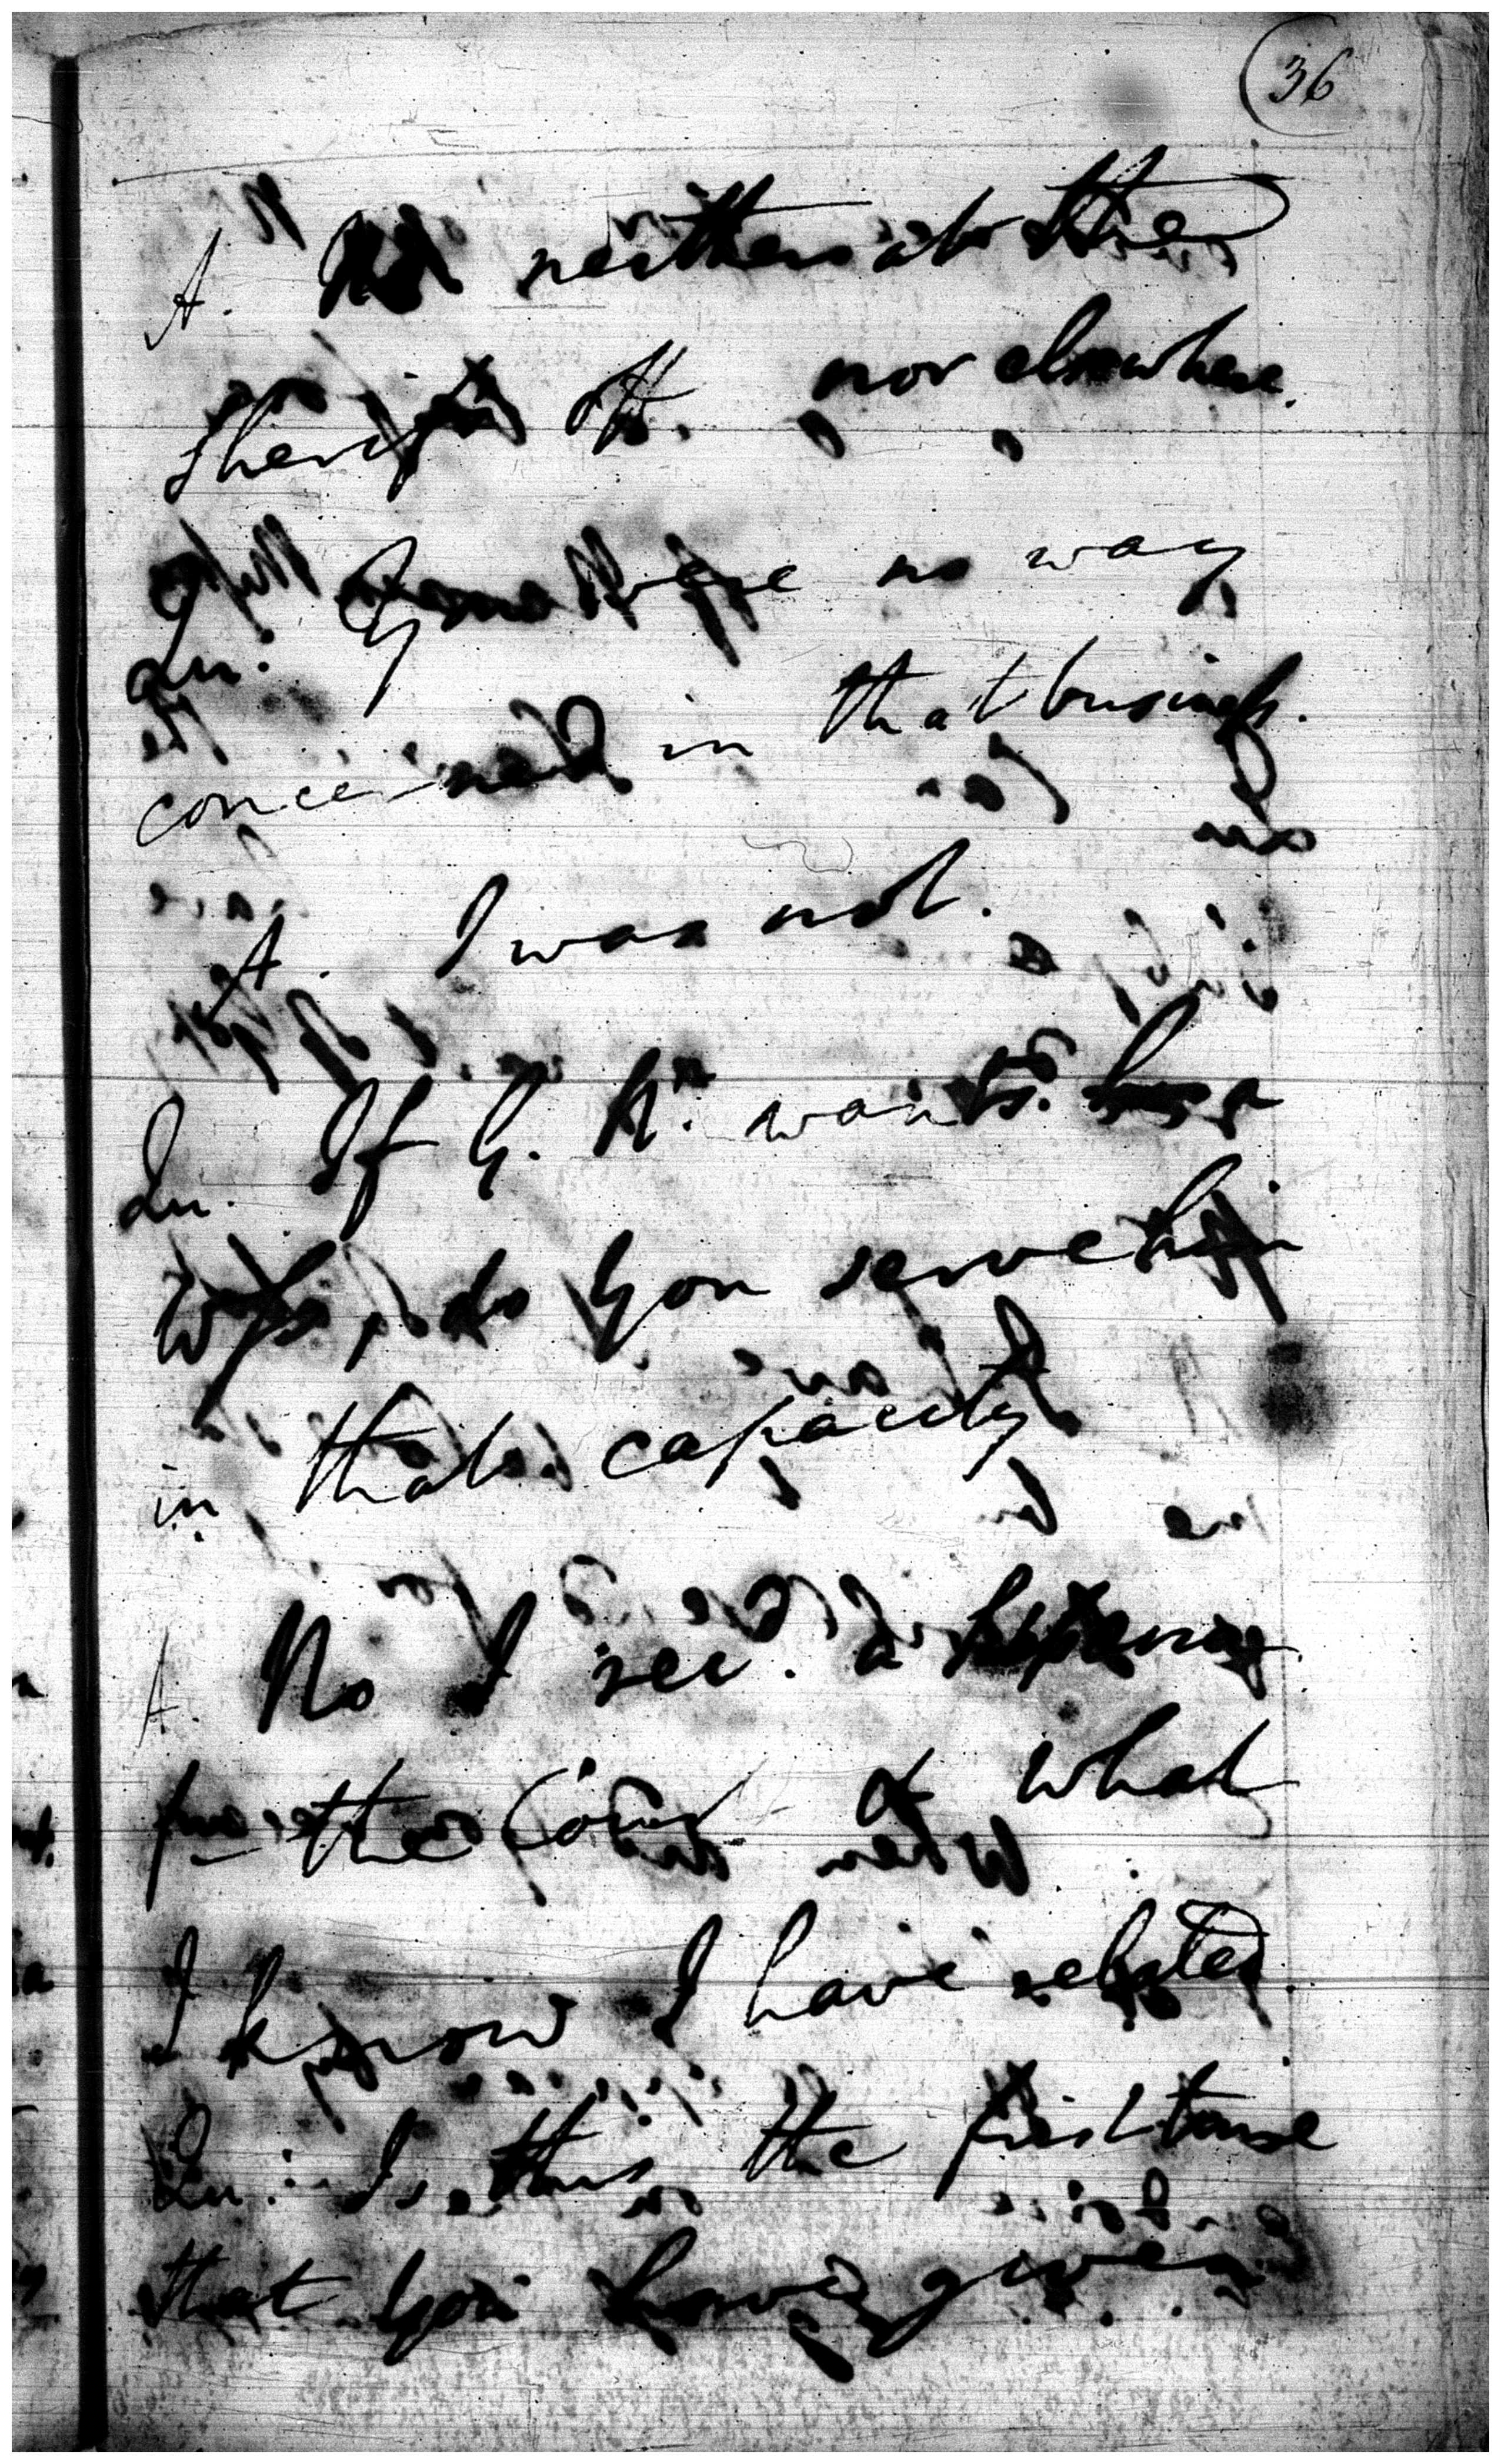 36
A. No neither at the
Sheriffs Off. nor elsewhere.
Qu. You were no way
concerned in that business.
A. I was not.
Qu. If G. R. wants
do you serve him
in that capacity
A. No I rec'd. a
from the Court & what
I know I have related.
Qu: Is this the first time
that you have given